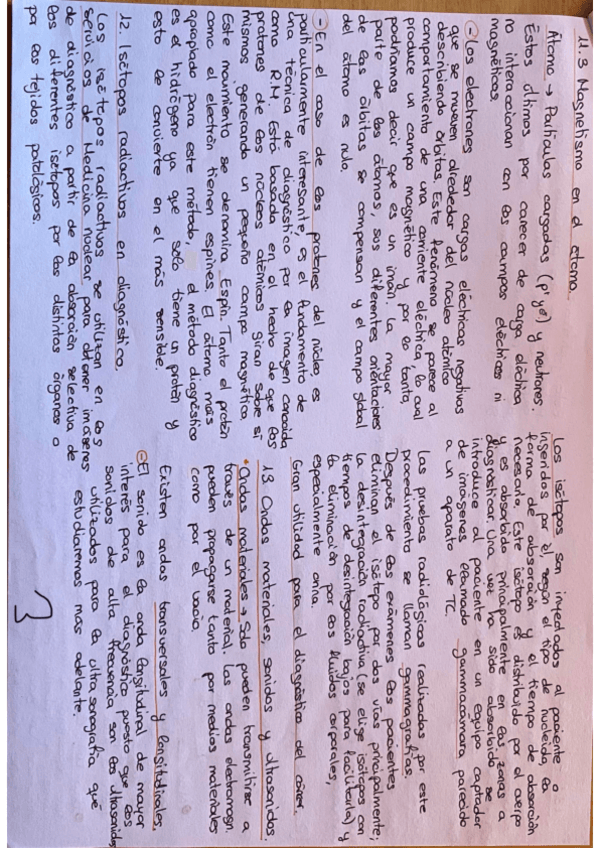 11.3 Magnetismo en el átomo.
Átomo → Partículas cargadas (p⁺ y e⁻) y neutrones.
Éstos últimos por carecer de carga eléctrica
no interaccionan con los campos eléctricos ni
magnéticos.
- Los electrones son cargas eléctricas negativas
que se mueven alrededor del núcleo atómico
describiendo órbitas. Este fenómeno se parece al
comportamiento de una corriente eléctrica, la cual
produce un campo magnético y por lo tanto,
podríamos decir que es un imán. La mayor
parte de los átomos, sus diferentes orientaciones
de las órbitas se compensan y el campo global
del átomo es nulo.
- En el caso de los protones del núcleo es
particularmente interesante, es el fundamento de
una técnica de diagnóstico por la imagen conocida
como R.M. Está basada en el hecho de que los
protones de los núcleos atómicos giran sobre sí
mismos generando un pequeño campo magnético.
Este movimiento se denomina Espín. Tanto el protón
como el electrón tienen espines. El átomo más
apropiado para este método, el método diagnóstico
es el hidrógeno ya que solo tiene un protón y
esto le convierte en el más sensible.
12. Isótopos radiactivos en diagnóstico.
Los isótopos radiactivos se utilizan en los
servicios de Medicina nuclear para obtener imágenes
de diagnóstico a partir de la absorción selectiva de
los diferentes isótopos por los distintos órganos o
por los tejidos patológicos.
Los isótopos son inyectados al paciente o
ingeridos por él según el tipo de nucleido, la
forma de absorción y el tiempo de absorción
necesaria. Este isótopo es distribuido por el cuerpo
y es absorbido principalmente en las zonas a
diagnosticar. Una vez ha sido absorbido se
introduce al paciente en un equipo captador
de imágenes llamado gammacámara parecido
a un aparato de TC.
Las pruebas radiológicas realizadas por este
procedimiento se llaman gammagrafías.
Después de los exámenes los pacientes
eliminan el isótopo por dos vías principalmente;
la desintegración radiactiva (se elige isótopos con
tiempos de desintegración bajos para facilitarla) y
la eliminación por los fluidos corporales,
especialmente orina.
Gran utilidad para el diagnóstico del cáncer.
13. Ondas materiales, sonidos y ultrasonidos.
• Ondas materiales → Solo pueden transmitirse a
través de un material. Las ondas electromagn.
pueden propagarse tanto por medios materiales
como por el vacío.
Existen ondas transversales y longitudinales.
- El sonido es la onda longitudinal de mayor
interés para el diagnóstico puesto que los
sonidos de alta frecuencia son los ultrasonidos
utilizados para la ultrasonografía que
estudiaremos más adelante.
3